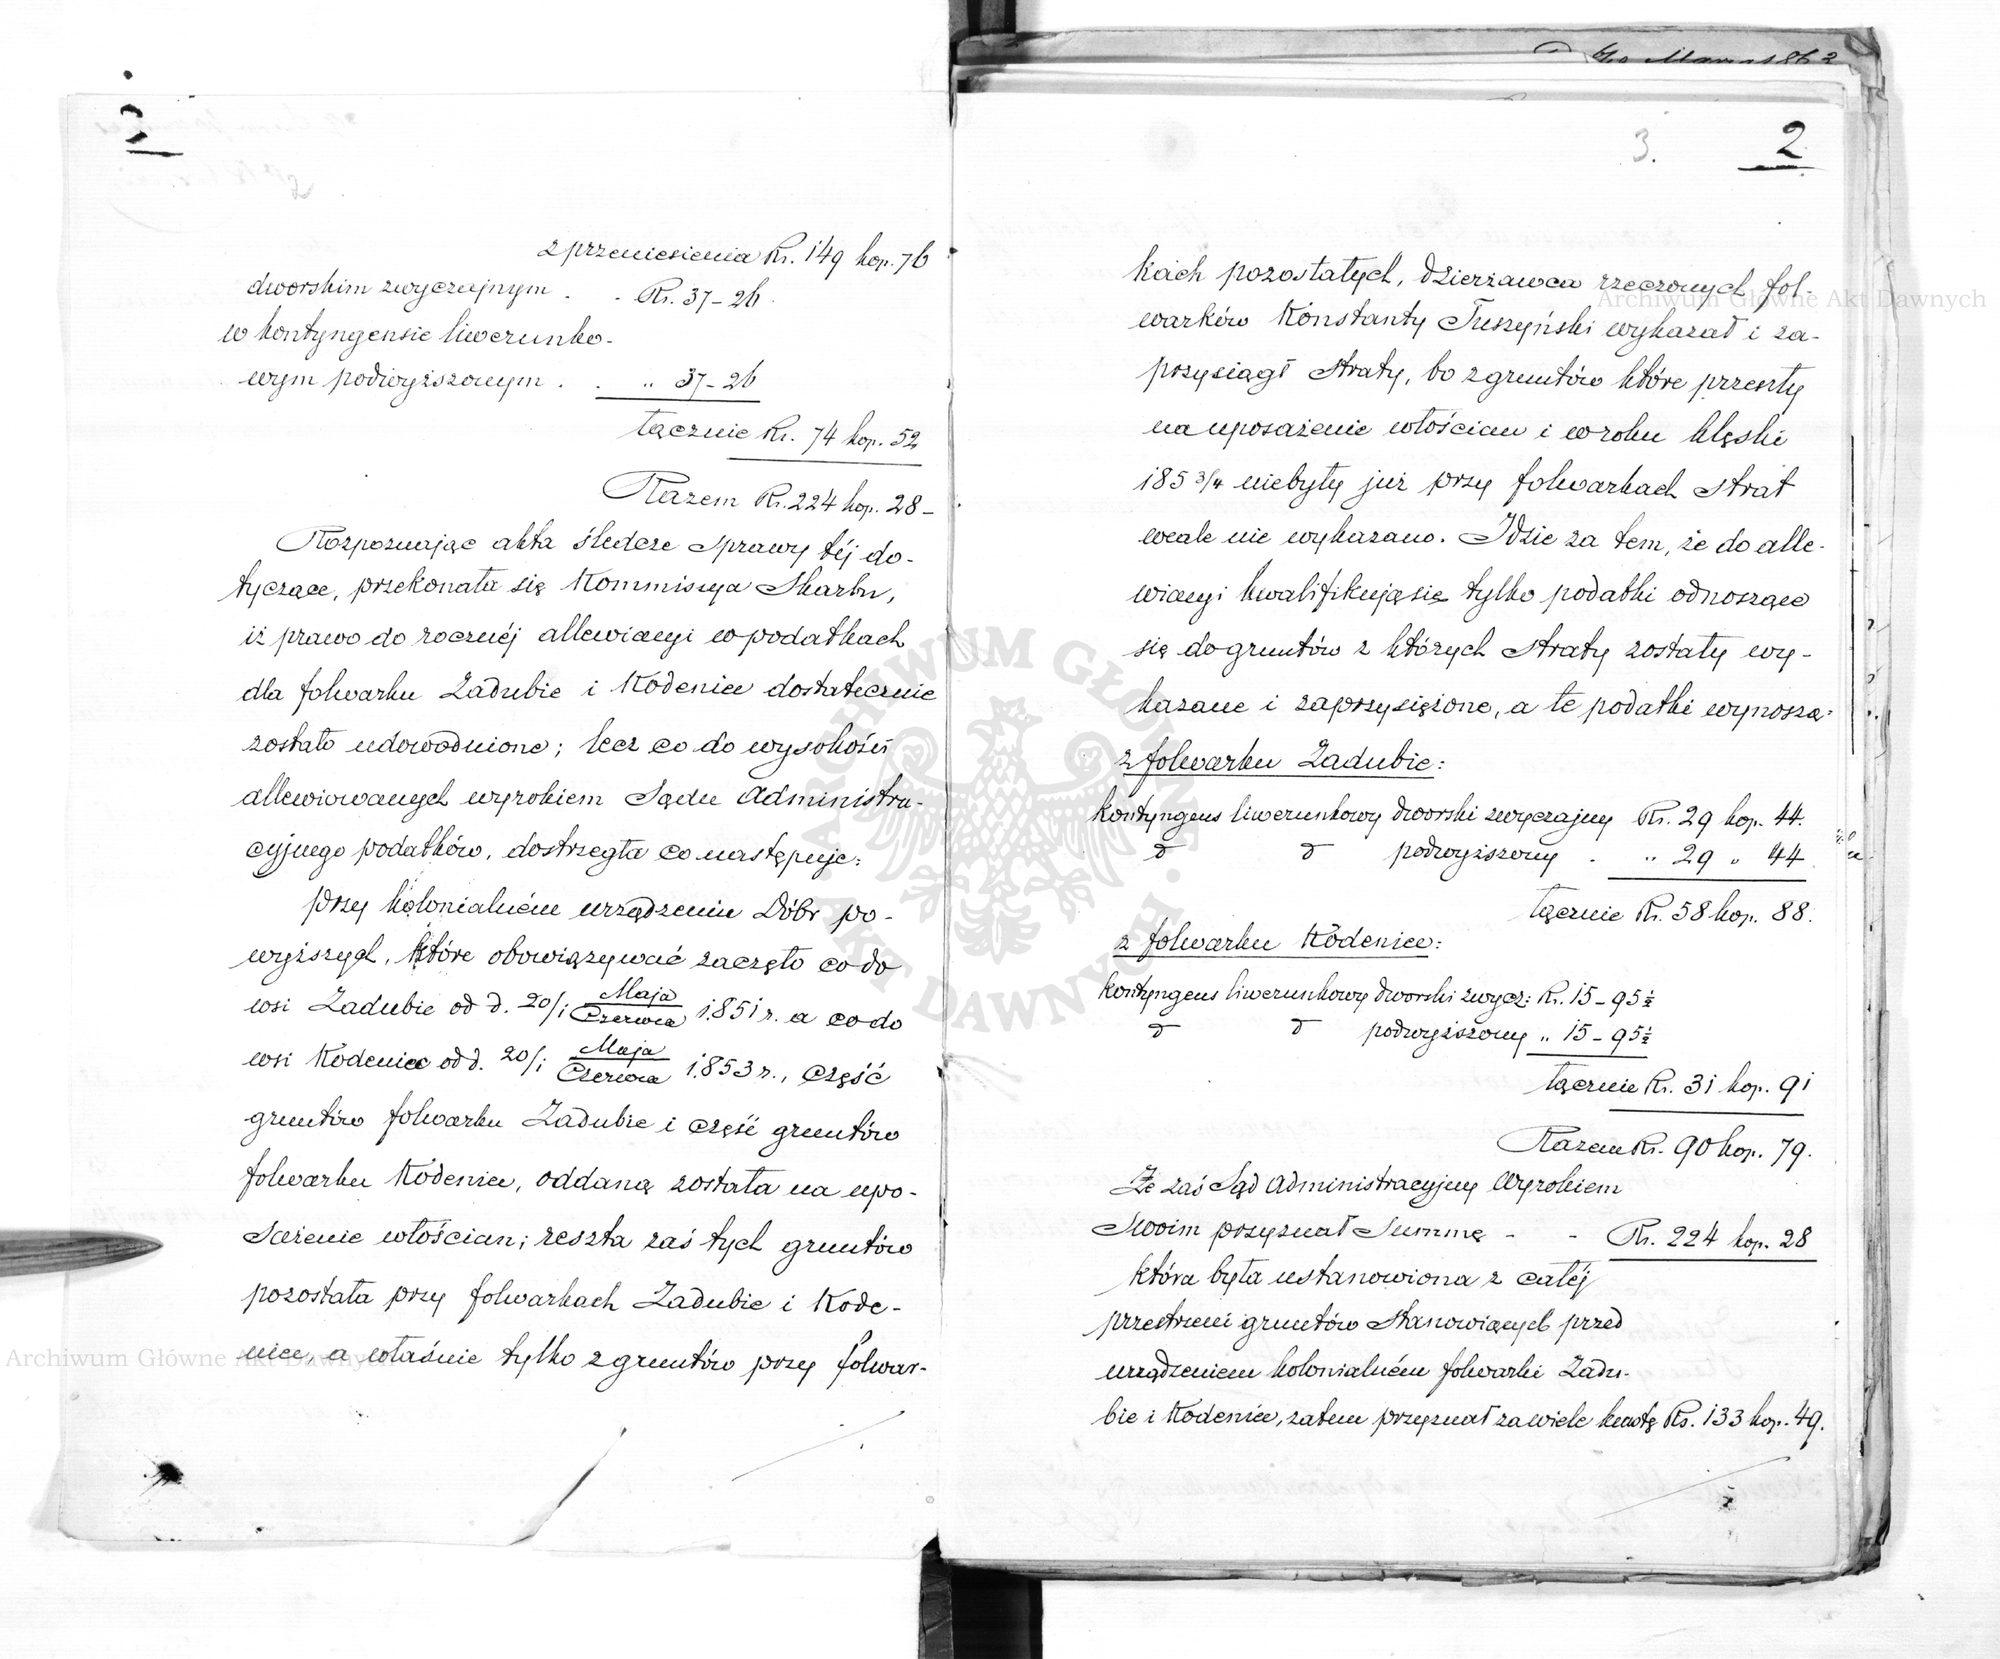 z przeniesienia Rs. 149 kop. 76
dworskim zwyczajnym . . Rs. 37-26
w kontyngensie liwerunko-
wym podwyższonym . . " 37-26
łącznie Rs. 74 kop. 52
Razem Rs. 224 kop. 28-
Rozpoznając akta śledcze sprawy téj do-
tyczące, przekonała się Kommissya Skarbu,
iż prawo do rocznéj allewiacyi w podatkach
dla folwarku Zadubie i Kodeniec dostatecznie
zostało udowodnione; lecz co do wysokości
allewiowanych wyrokiem Sądu Administra-
cyjnego podatków, dostrzegła co następuje:
przy kolonialném urządzeniu Dóbr po-
wyższych, które obowiązywać zaczęło co do
wsi Zadubie od d. 20/1 Maja/Czerwca 1851 r. a co do
wsi Kodeniec od d. 20/1 Maja/Czerwca 1853 r., część
gruntów folwarku Zadubie i część gruntów
folwarku Kodeniec, oddaną została na upo-
sażenie włościan; reszta zaś tych gruntów
pozostała przy folwarkach Zadubie i Kode-
niec, a właśnie tylko z gruntów przy folwar-
3. 2
kach pozostałych, dzierżawca rzeczonych fol-
warków Konstanty Tuszyński wykazał i za-
przysiągł straty, bo z gruntów które przeszły
na uposażenie włościan i w roku klęski
185 3/4 niebyły już przy folwarkach strat
wcale nie wykazano. Idzie za tem, że do alle-
wiacyi kwalifikują się tylko podatki odnoszące
się do gruntów z których straty zostały wy-
kazane i zaprzysiężone, a te podatki wynoszą:
z folwarku Zadubie:
kontyngens liwerunkowy dworski zwyczajny Rs. 29 kop. 44.
d d podwyższony . " 29 " 44
łącznie Rs. 58 kop. 88.
z folwarku Kodeniec:
kontyngens liwerunkowy dworski zwycz: Rs. 15-95½
d d podwyższony " 15-95½
łącznie Rs. 31 kop. 91
Razem Rs. 90 kop. 79.
Że zaś Sąd Administracyjny Wyrokiem
Swoim przyznał Summę - - Rs. 224 kop. 28
która była ustanowiona z całéj
przestrzeni gruntów stanowiących przed
urządzeniem kolonialném folwarki Zadu-
bie i Kodeniec, zatem przyznał za wiele kwotę Rs. 133 kop. 49.
Archiwum Główne Akt Dawnych
Archiwum Główne Akt Dawnych
ARCHIWUM GŁÓWNE AKT DAWNYCH